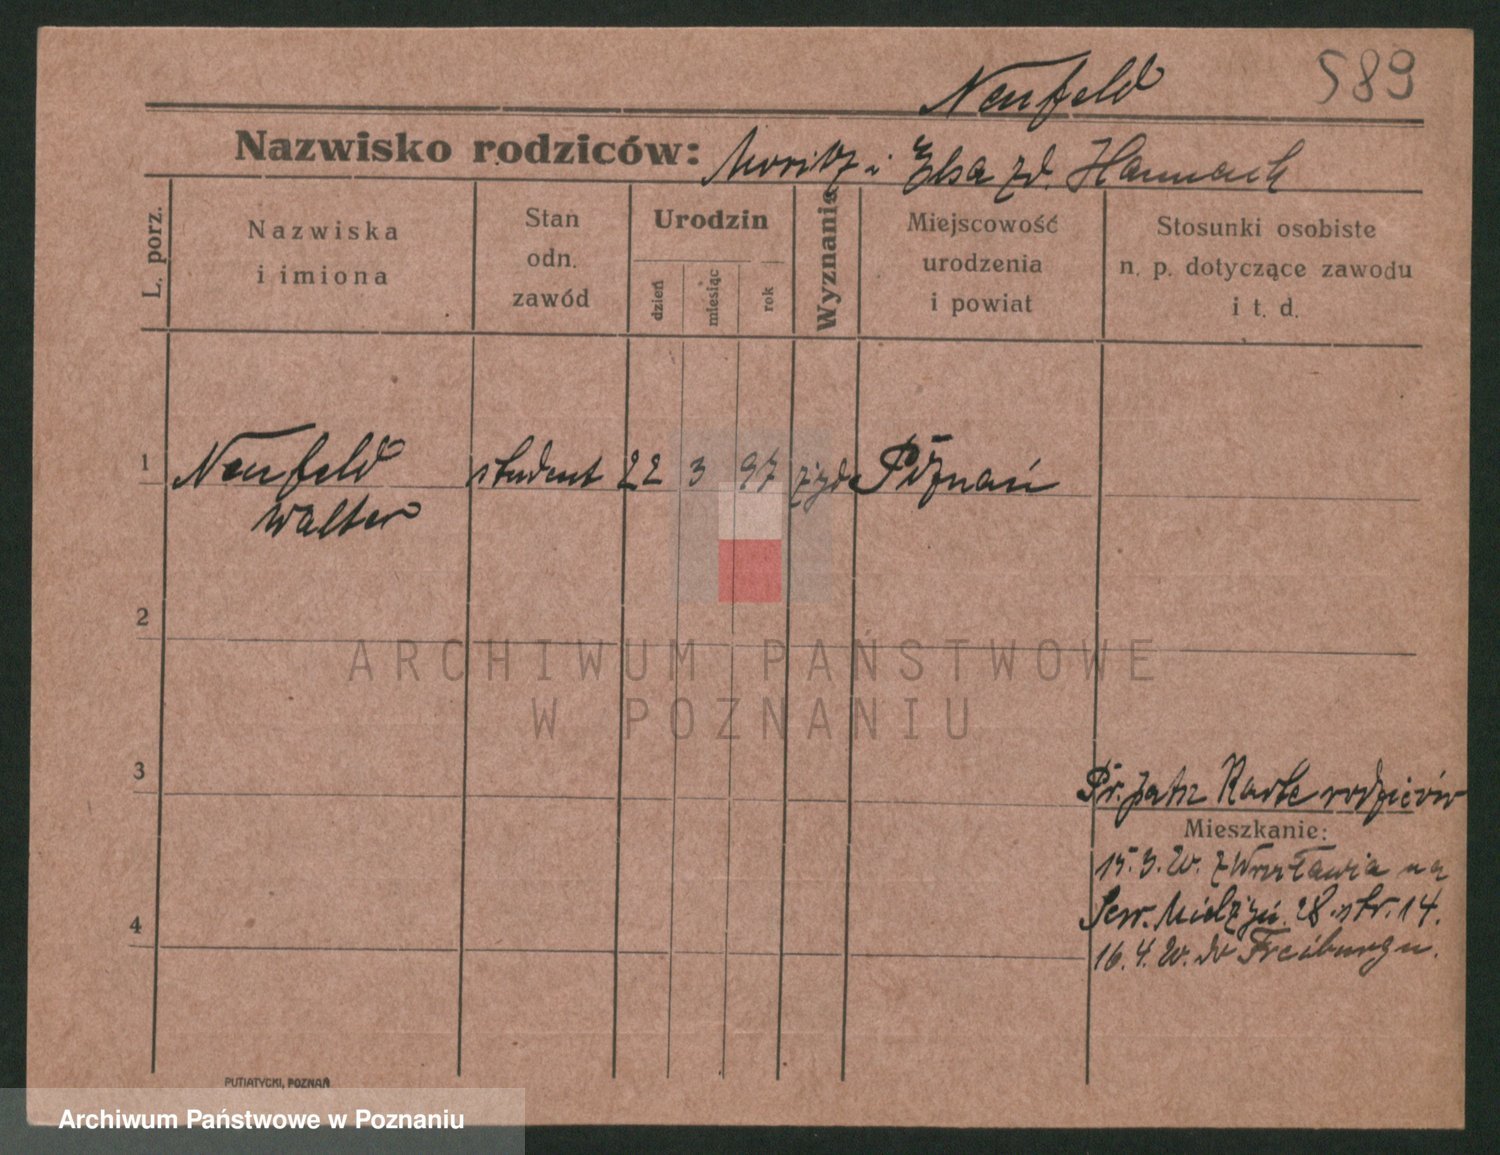 Neufeld 589
Nazwisko rodziców: Moritz i Elsa zd. Hannach
L. porz.
Nazwiska
i imiona
Stan
odn.
zawód
Urodzin
dzień
miesiąc
rok
Wyznanie
Miejscowość
urodzenia
i powiat
Stosunki osobiste
n. p. dotyczące zawodu
i t. d.
1 Neufeld student 22 3 97 żyd Poznań
Walter
2
ARCHIWUM PAŃSTWOWE
W POZNANIU
3
Pr. patrz Kartę rodziców
Mieszkanie:
15.3.20. z Wrocławia na
Sew. Mielżyń. 28 str. 14.
4
16.4.20. do Freiburgu.
PUTIATYCKI, POZNAŃ
Archiwum Państwowe w Poznaniu